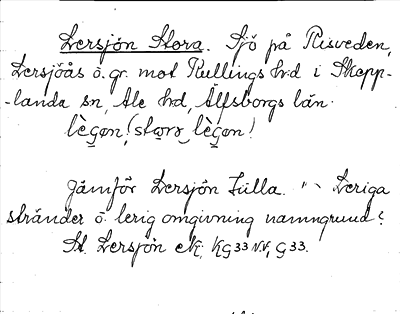 Lersjön Stora. Sjö på Risveden,
Lersjöås ö. gr. mot Kullings hd i Skepp-
-landa sn, Ale hd, Älfsborgs län.
Jämför Lersjön Lilla. Leriga
stränder o. lerig omgivning namngrund?
St. Lersjön ek; KG 33 N.V, G 33.